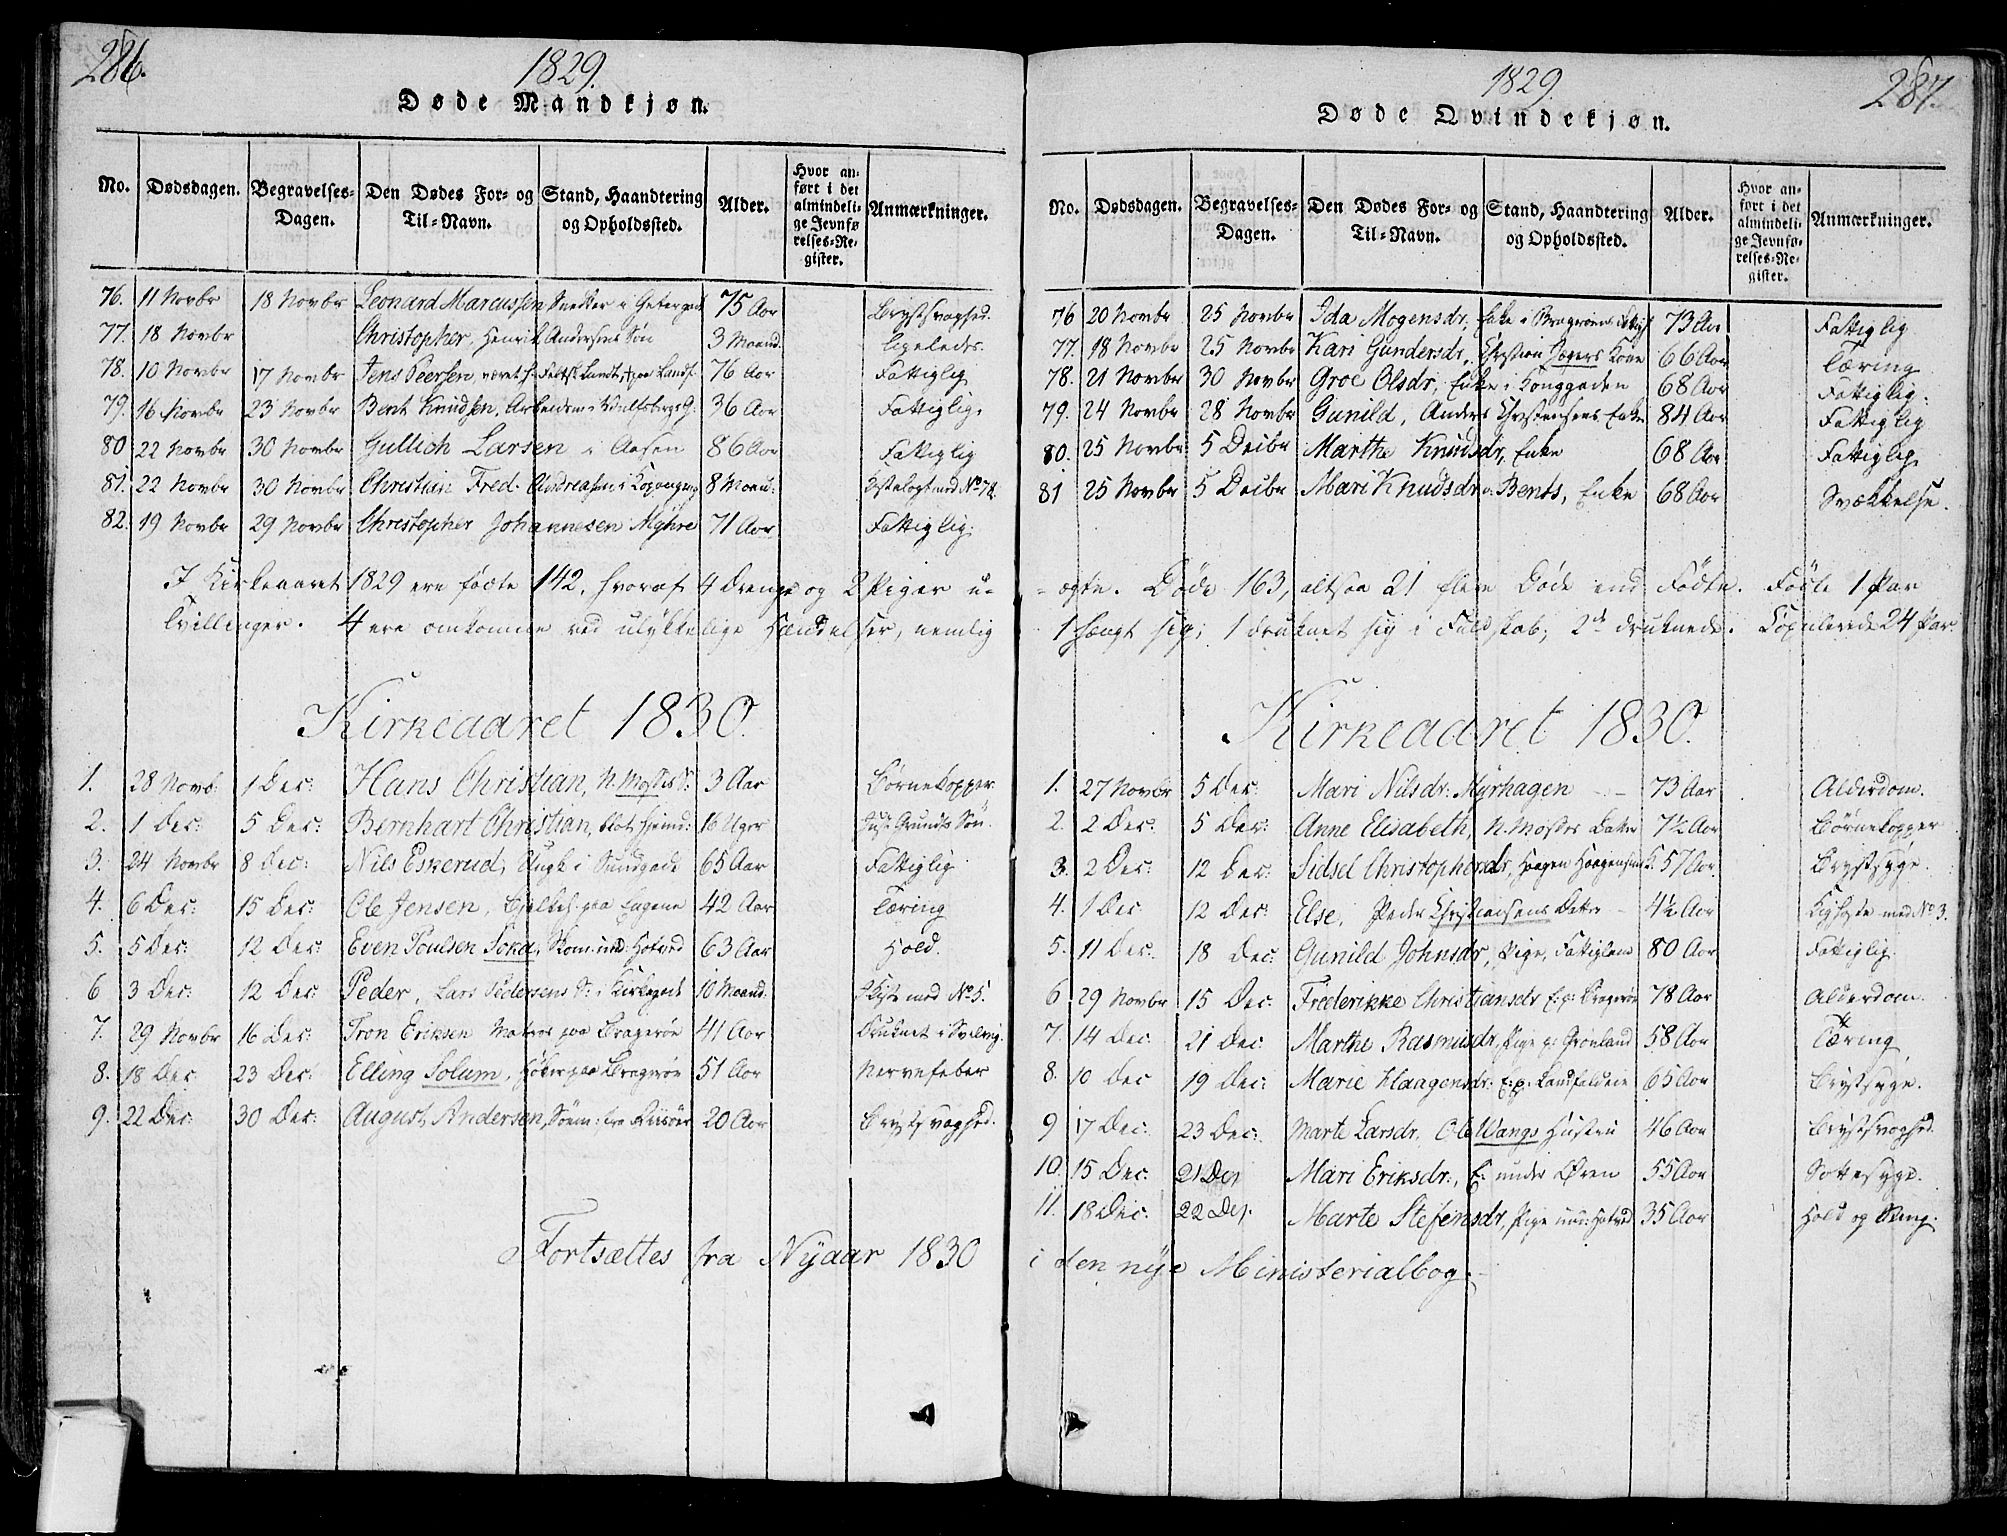 286.
1829.
Døde Mandkjøn.
No. Dødsdagen. Begravelses-Dagen. Den Dødes For- og Til-Navn. Stand, Haandtering og Opholdssted. Alder. Hvor anført i det almindelige Jevnførelses-Register. Anmærkninger.
76. 11 Novbr 18 Novbr Leonard Marcussen Snedker i 75 Aar Brystsvaghed.
77. 18 Novbr Christopher, Henrik Andersens Søn 3 Maand. ligeledes.
78. 10 Novbr 17 Novbr Jens Peersen 76 Aar Fattiglig
79. 16 Novbr 23 Novbr Bent Knudsen, 36 Aar Fattiglig.
80 22 Novbr 30 Novbr Gullich Larsen i Aasen 86 Aar Fattiglig
81. 22 Novbr 30 Novbr Christian Fred. Andreasen i 8 Maan: No 78.
82. 19 Novbr 29 Novbr Christopher Johannesen Myhre 71 Aar Fattiglig.
I Kirkeaaret 1829 ere fødte 142, hvoraf 4 Drenge og 2 Piger u-
Tvillinger. 4 ere omkomne ved ulykkelige Hændelser, nemlig
Kirkeaaret 1830.
1. 28 Novb: 1 Dec: Hans Christian, N. Mostes S: 3 Aar Børnekopper
2. 1 Dec: 5 Dec: Bernhart Christian, 16 Uger Grunds Søn.
3. 24 Novbr 8 Dec: Nils Eskerud, i Sundgade 65 Aar Fattiglig
4. 6 Dec: 15 Dec: Ole Jensen, paa Engene 42 Aar Tæring
5. 5 Dec: 12 Dec: Even Poulsen Toka, Skom: 63 Aar Hold.
6 3 Dec: 12 Dec: Peder, Lars Pedersens S: i Kirkegade 10 Maand. med No 5.
7. 29 Novbr 16 Dec: Tron Eriksen Matros paa Bragerøe 41 Aar Druknet i Svelvig.
8. 18 Dec: 23 Dec: Elling Solum, Høker paa Bragerøe 51 Aar Nervefeber
9. 22 Dec: 30 Dec: August Andersen, Sørm: fra 20 Aar Brystsvaghed.
Fortsættes fra Nyaar 1830
287.
1829.
Døde Qvindekjøn.
No. Dødsdagen. Begravelses-Dagen. Den Dødes For- og Til-Navn. Stand, Haandtering og Opholdssted. Alder. Hvor anført i det almindelige Jevnførelses-Register. Anmærkninger.
76 20 Novbr 25 Novbr Ida Mogensdr, Enke i 73 Aar Fattiglig
77. 18 Novbr 25 Novbr Kari Gundersdr, Christian Jægers Kone 66 Aar Tæring
78. 21 Novbr 30 Novbr Groe Olsdr, Enke i Konggaden 68 Aar Fattiglig.
79. 24 Novbr 28 Novbr Gunild, Anders Christensens Enke 84 Aar Fattiglig
80. 25 Novbr 5 Decbr Marthe Knudsdr, Enke 68 Aar Fattiglig
81 25 Novbr 5 Decbr Mari Knudsdr Bents, Enke 68 Aar Svækkelse.
-ægte. Døde 163, altsaa 21 flere Døde end Fødte. Fødte 1 Par
1 hængt sig, 1 druknet sig i Fuldskab, 2de druknede. Copulerede 24 Par.
Kirkeaaret 1830.
1. 27 Novbr 5 Dec: Mari Nilsdr: Myrhagen 73 Aar Alderdom.
2. 2 Dec: 5 Dec: Anne Elisabeth, N. Mostes Datter 7½ Aar Børnekopper
3. 2 Dec: 12 Dec: Sidsel Christophersdr, Haagen Haagensens K. 57 Aar Brystsyge.
4. 1 Dec 12 Dec: Else, Peder Christiansens Datter 4½ Aar med No 3.
5. 11 Dec: 18 Dec: Gunild Johnsdr, Pige, Fattiglem 80 Aar Fattiglig.
6 29 Novbr 15 Dec: Frederikke Christiansdr E: p: Bragerøe 78 Aar Alderdom.
7. 14 Dec. 21 Dec. Marthe Rasmusdr, Pige p: Grønland 58 Aar Tæring
8. 10 Dec 19 Dec: Marie Haagensdr: E: p: Landfaldøie 65 Aar Brystsyge.
9 17 Dec: 23 Dec: Marte Larsdr, Ole Wangs Hustru 46 Aar Brystsvaghed.
10. 15 Dec: 21 Dec Mari Eriksdr:, E: under Øren 55 Aar Sottesyge.
11. 18 Dec: 22 Dec: Marte Stefensdr, Pige 35 Aar Hold og Sting.
i den nye Ministerialbog.